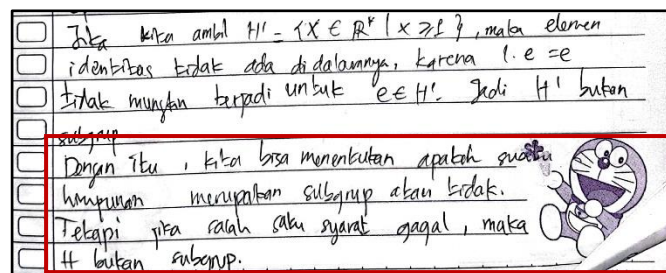 Jika kita ambil H' = {x ∈ ℝ* | x ≥ 1}, maka elemen
identitas tidak ada di dalamnya, karena 1. e = e
tidak mungkin terjadi untuk e ∈ H'. Jadi H' bukan
subgrup
Dengan itu, kita bisa menentukan apakah suatu
himpunan merupakan subgrup atau tidak.
Tetapi jika salah satu syarat gagal, maka
H bukan subgrup.